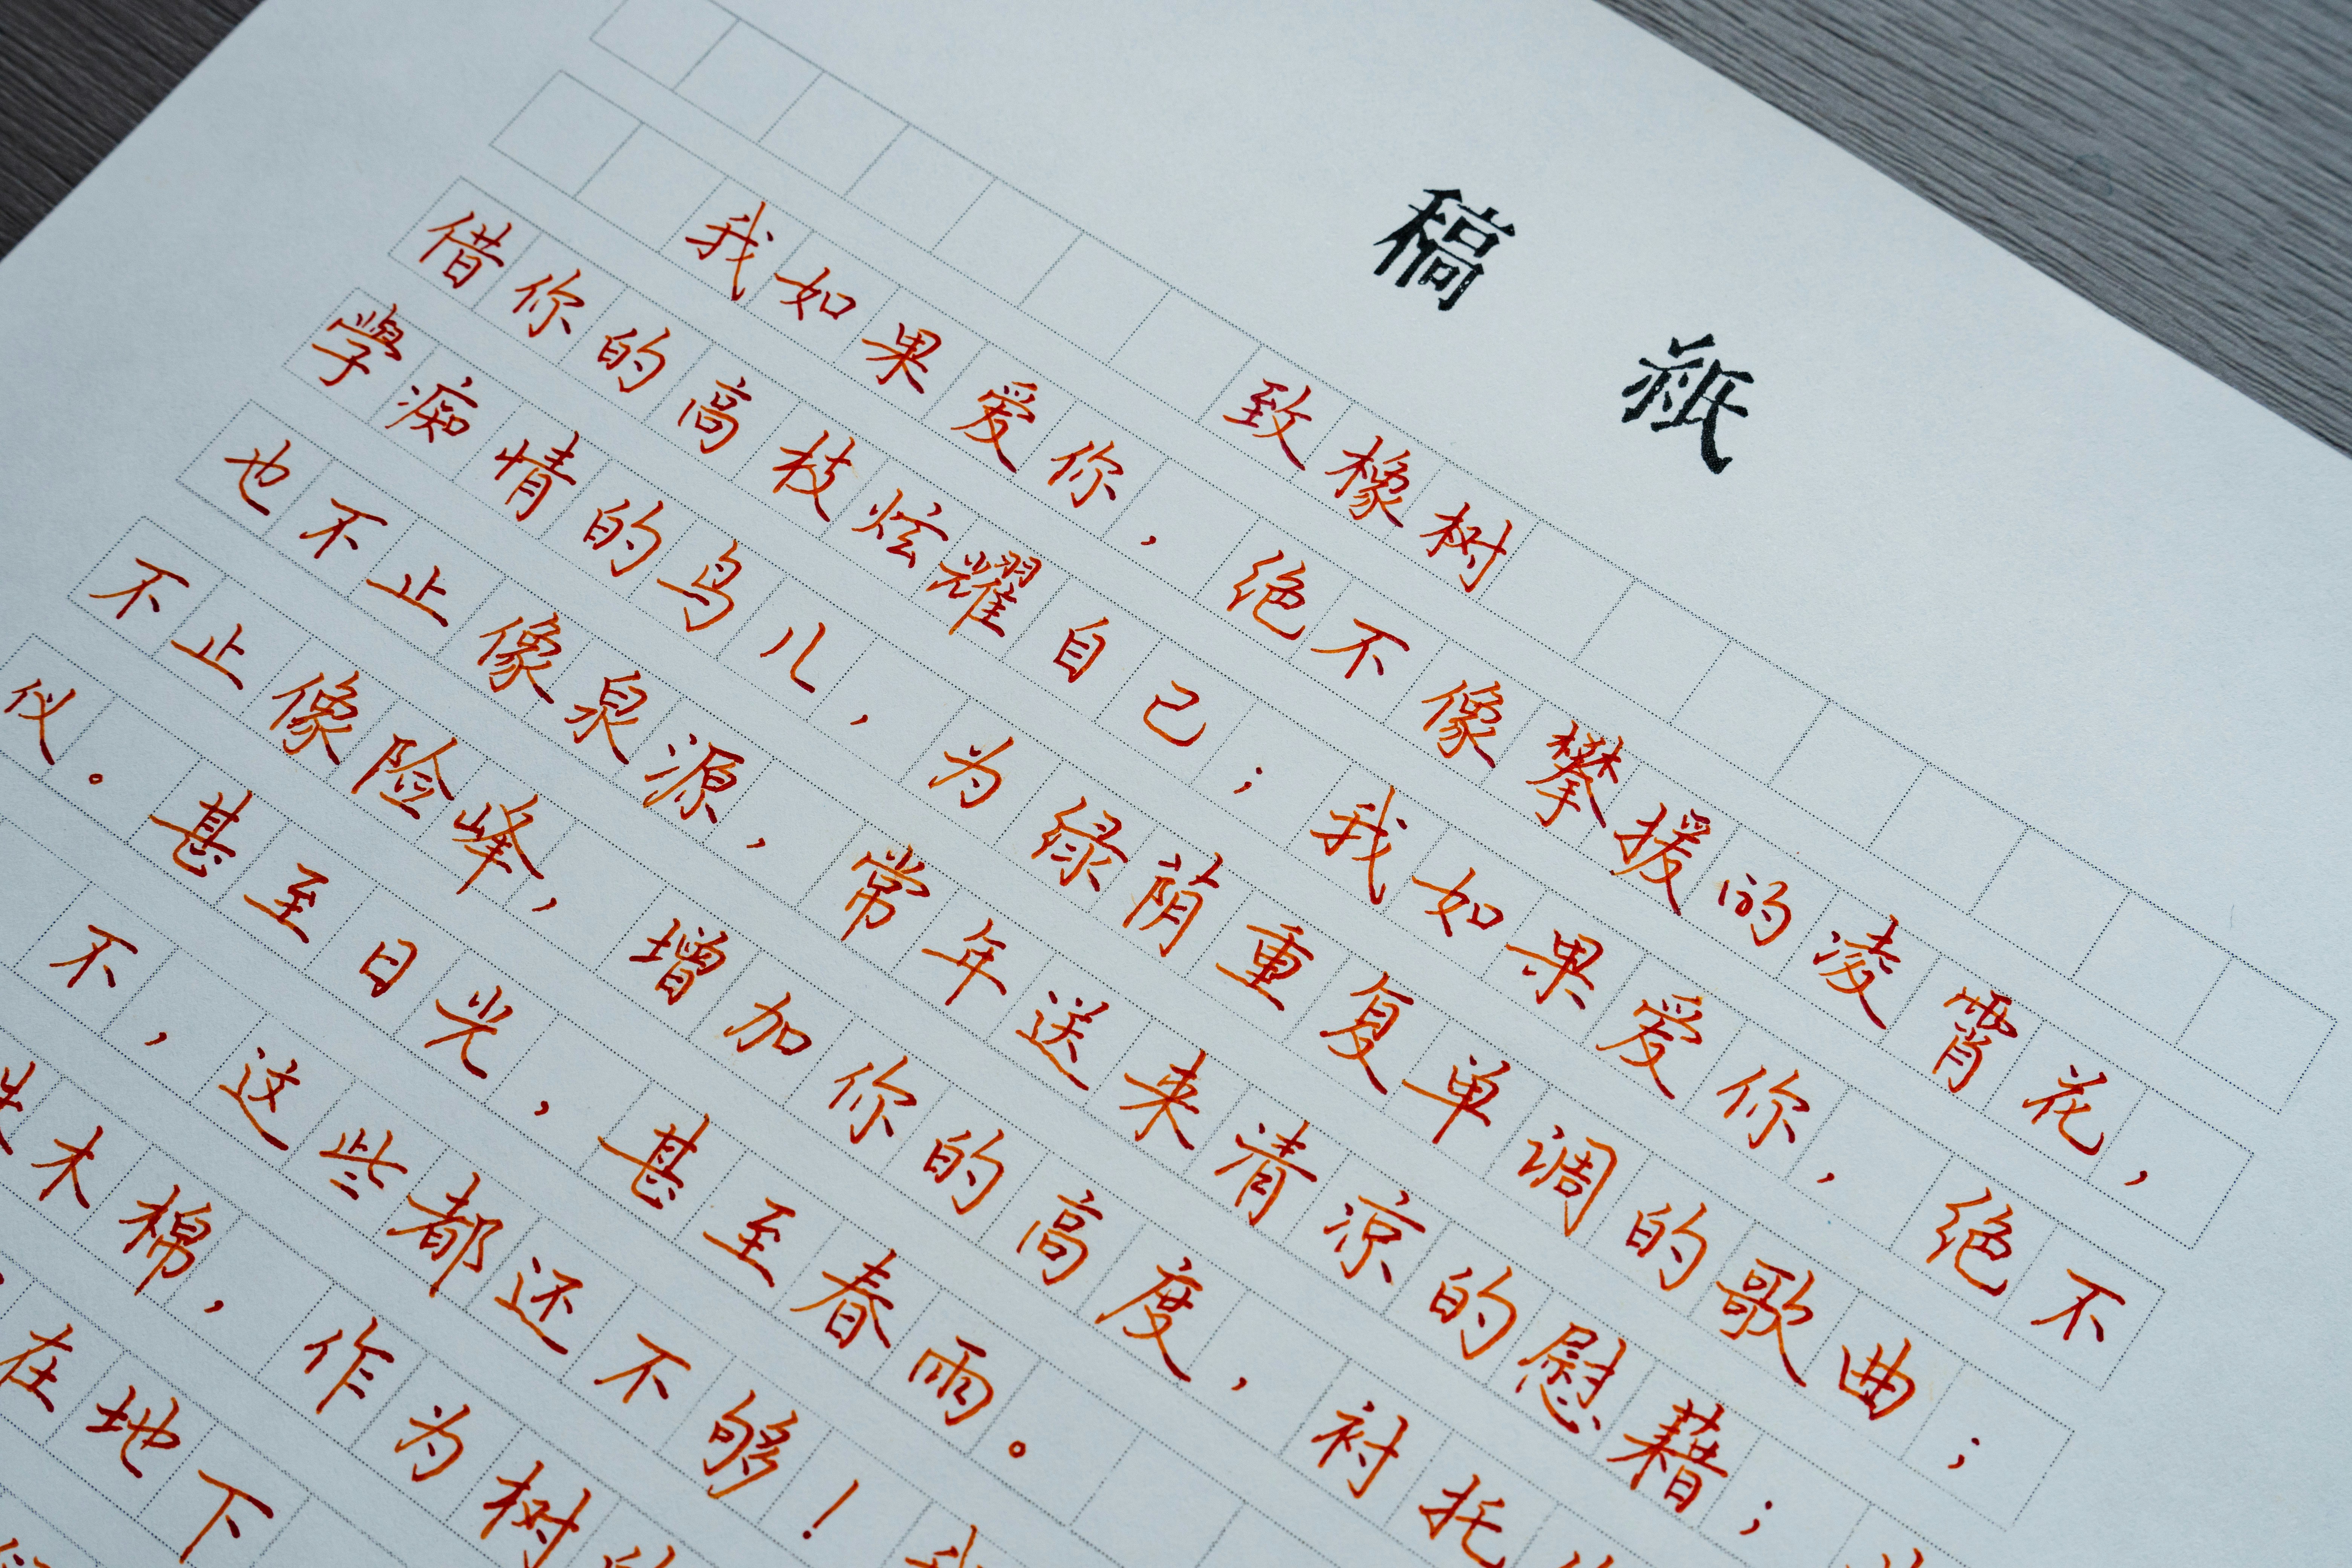 稿纸
致橡树
我如果爱你，绝不像攀援的凌霄花，
借你的高枝炫耀自己；我如果爱你，绝不
學痴情的鸟儿，为绿荫重复单调的歌曲；
也不止像泉源，常年送来清凉的慰藉；
不止像险峰，增加你的高度，衬托
仪。甚至日光，甚至春雨。
不，这些都还不够！
木棉，作为树
在地下